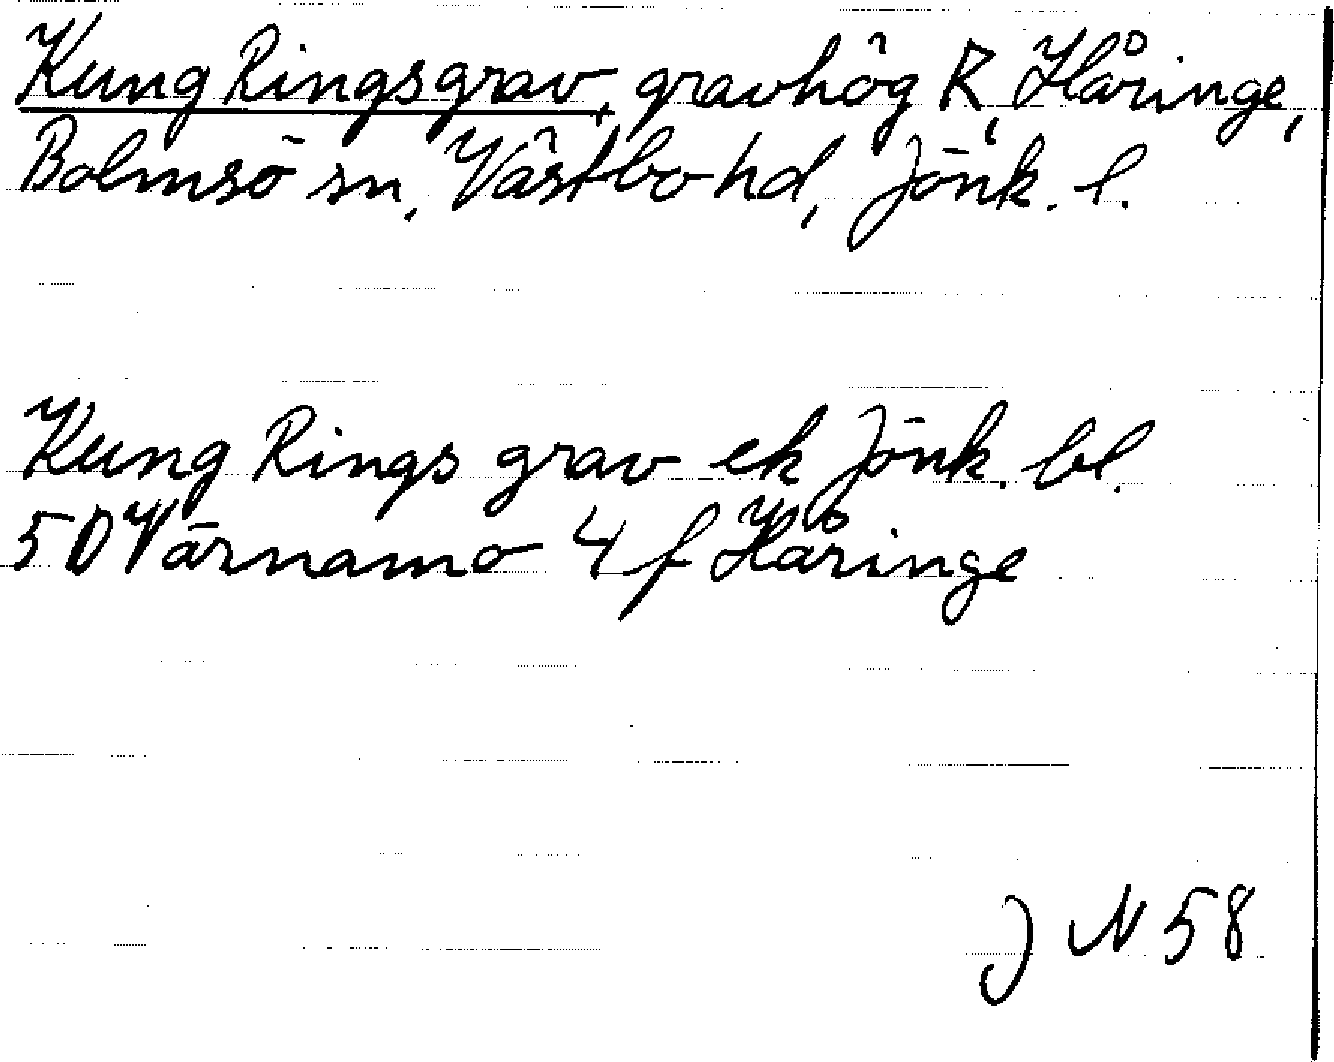 Kung Ringsgrav, gravhög R, Håringe,
Bolmsö sn, Västbo hd, Jönk. l.
Kung Rings grav ek Jönk. bl.
5 D Värnamo 4 f Håringe
J N 58